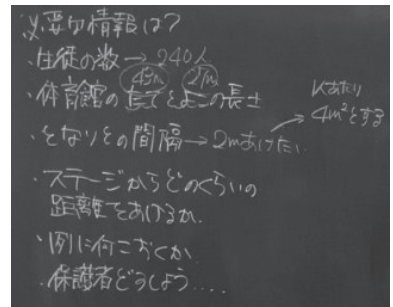 必要な情報は?
・生徒の数→240人
43m 27m
・体育館のたてとよこの長さ
1人あたり
4m²とする
・となりとの間隔→2mあけたい
・ステージからどのくらいの
距離をあけるか.
・1列に何こおくか
・保護者どうしよう....